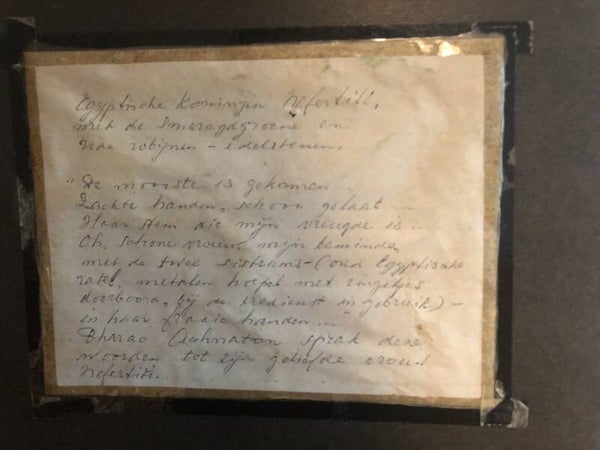 Egyptische Koningin Nefertiti,
met de smaragdgroene en
rode robijnen - edelstenen.
"De mooiste is gekomen
Zachte handen, schoon gelaat...
Haar stem die mijn vreugde is...
Oh, schone vrouw, mijn beminde,
met de twee sistrums - (oud Egyptische
ratel, metalen hoepel met ringetjes
doorboord, bij de eredienst in gebruik) -
in haar fraaie handen..."
Pharao Achnaton sprak deze
woorden tot zijn geliefde vrouw
Nefertiti.